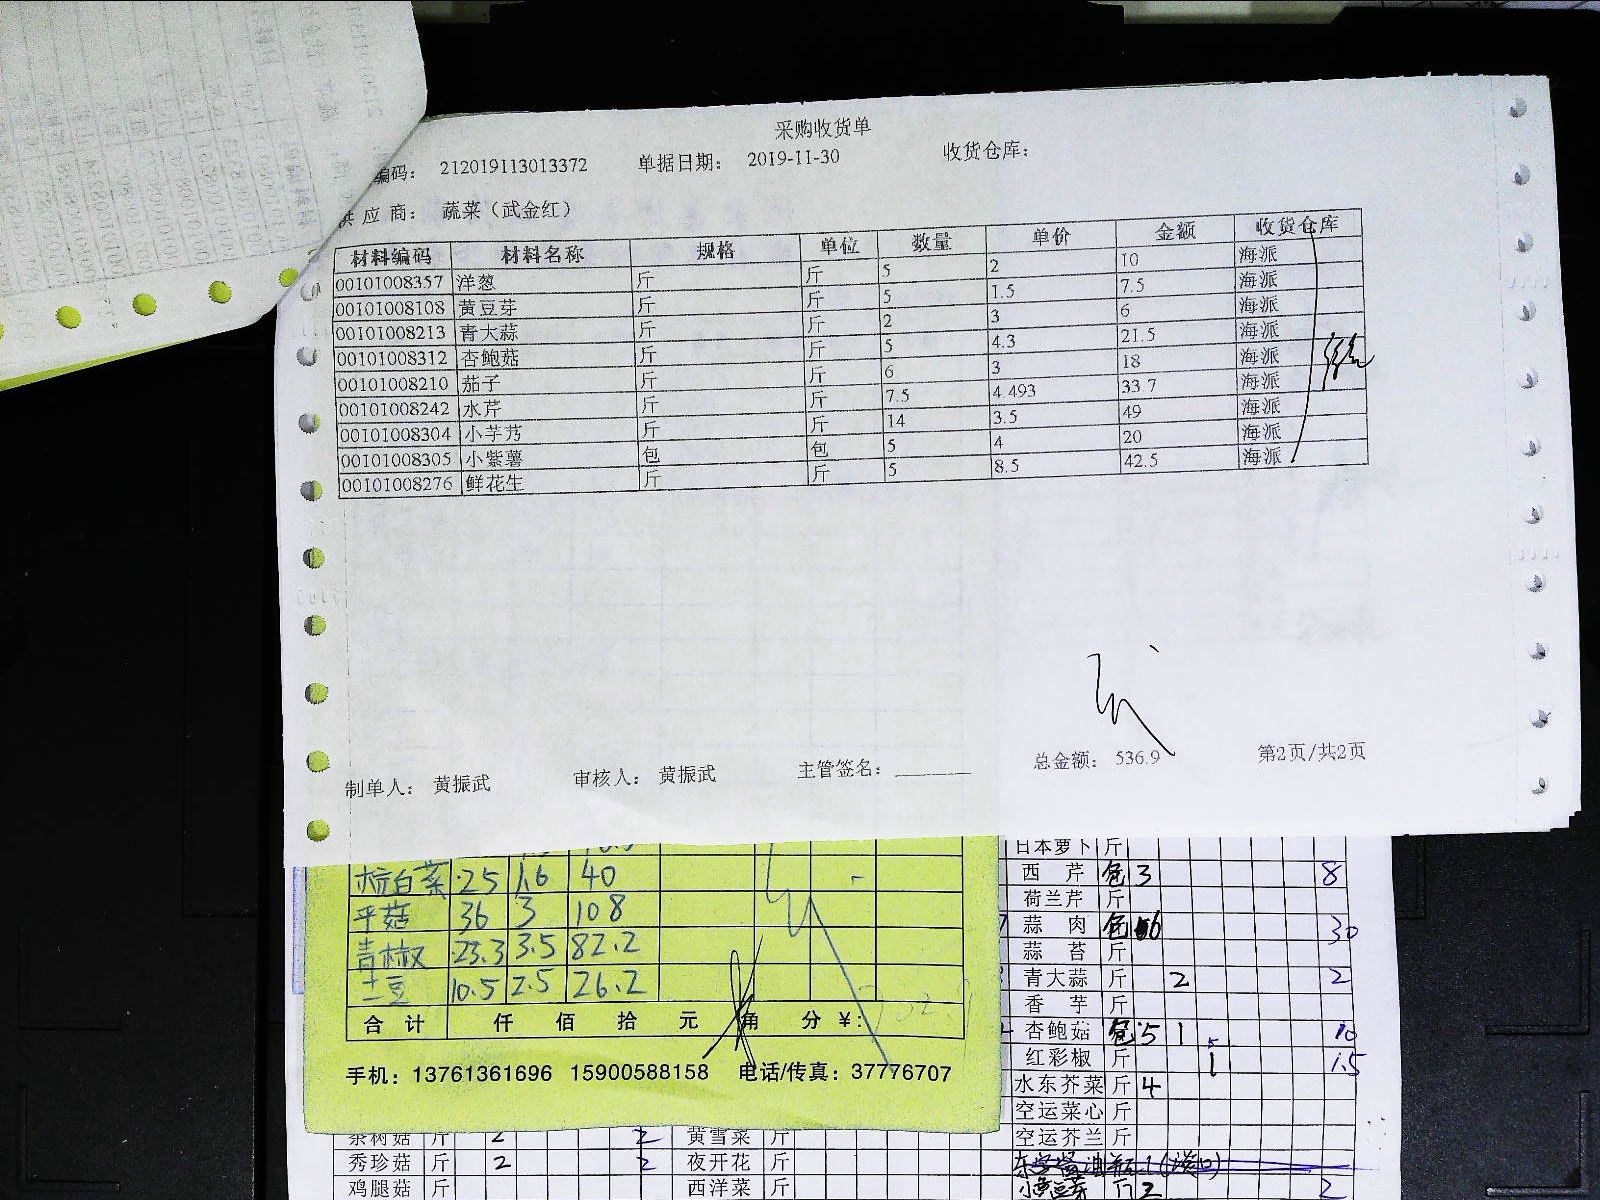 采购收货单
编码： 212019113013372 单据日期： 2019-11-30 收货仓库：
供应商： 蔬菜（武金红）
材料编码 材料名称 规格 单位 数量 单价 金额 收货仓库
00101008357 洋葱 斤 斤 5 2 10 海派
00101008108 黄豆芽 斤 斤 5 1.5 7.5 海派
00101008213 青大蒜 斤 斤 2 3 6 海派
00101008312 杏鲍菇 斤 斤 5 4.3 21.5 海派
00101008210 茄子 斤 斤 6 3 18 海派
00101008242 水芹 斤 斤 7.5 4.493 33.7 海派
00101008304 小芋艿 斤 斤 14 3.5 49 海派
00101008305 小紫薯 包 包 5 4 20 海派
00101008276 鲜花生 斤 斤 5 8.5 42.5 海派
制单人： 黄振武 审核人： 黄振武 主管签名： 总金额： 536.9 第2页/共2页
杭白菜 25 1.6 40
平菇 36 3 108
青椒 23.3 3.5 82.2
土豆 10.5 2.5 26.2
合计 仟 佰 拾 元 角 分 ¥:
手机：13761361696 15900588158 电话/传真：37776707
日本萝卜 斤
西芹 包 3 8
荷兰芹 斤
蒜肉 包 6 30
蒜苔 斤
青大蒜 斤 2 2
香芋 斤
杏鲍菇 包 5 1 10
红彩椒 斤 1 1.5
水东芥菜 斤 4
空运菜心 斤
空运芥兰 斤
茶树菇 斤 2 2 黄雪菜 斤
秀珍菇 斤 2 2 夜开花 斤
鸡腿菇 斤 西洋菜 斤